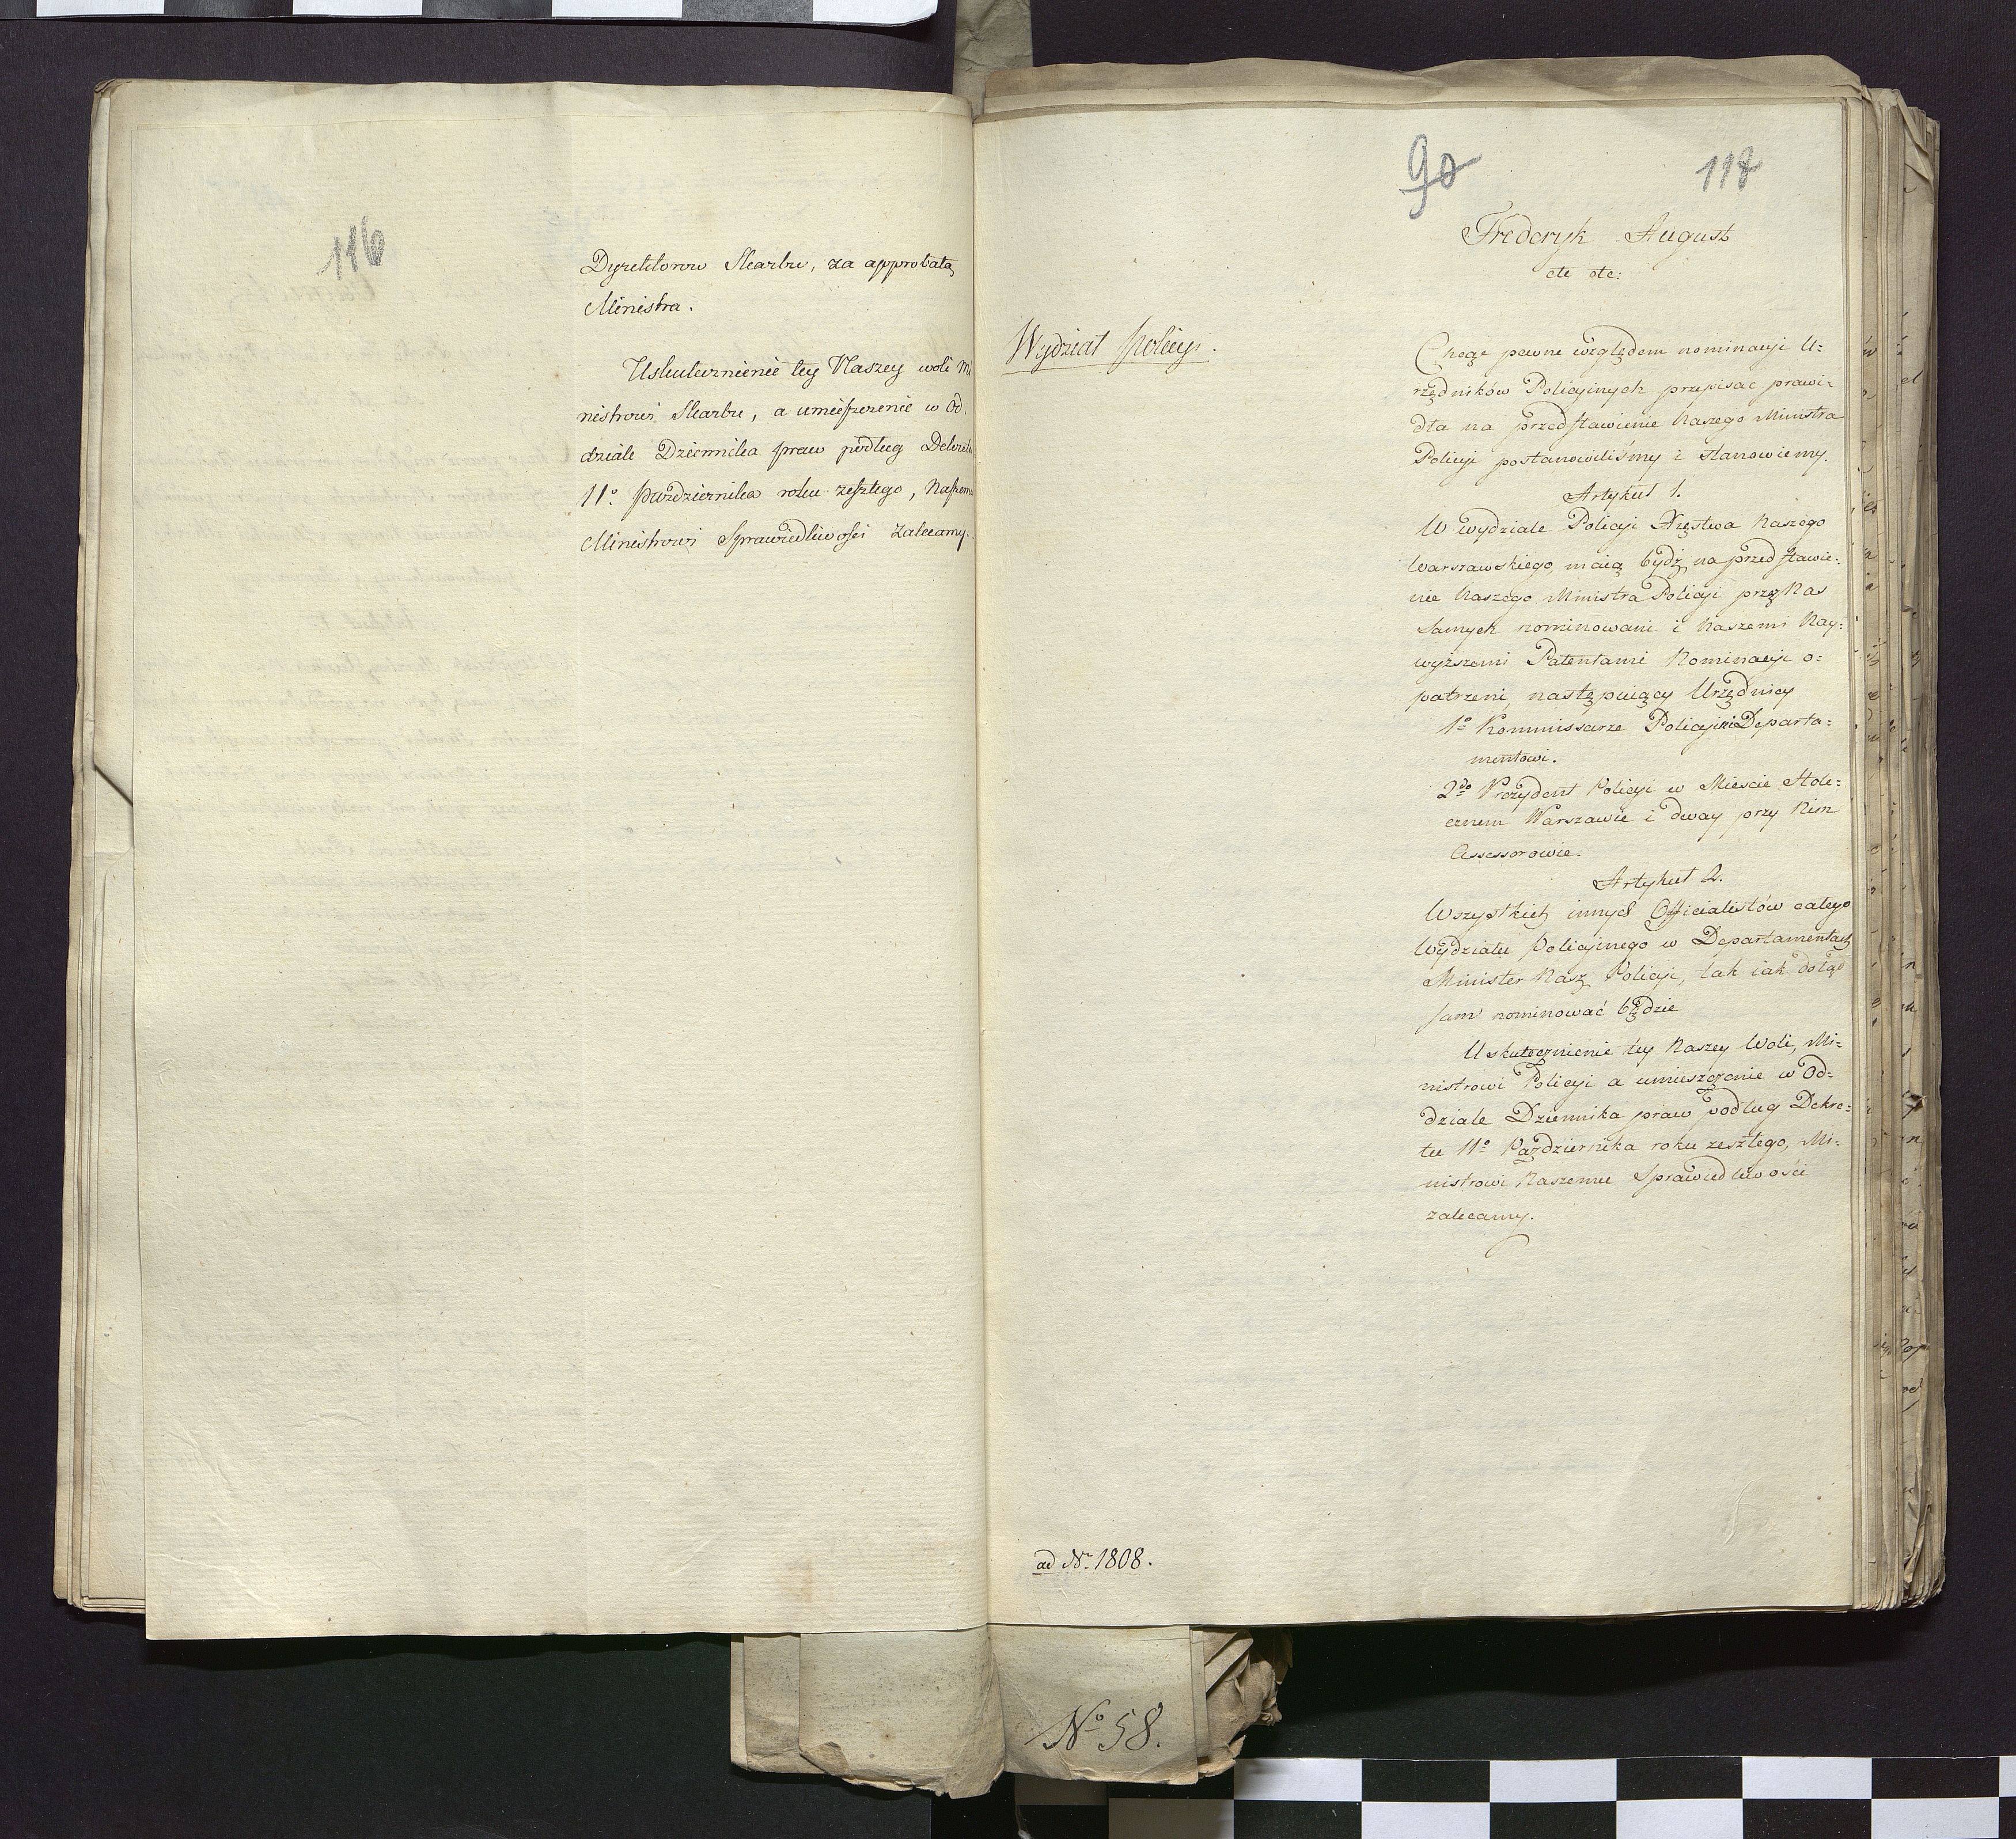 116
Dyrektorow Skarbu, za approbatą
Ministra.
Uskutecznienie tey Naszey woli Mi
nistrowi Skarbu, a umieszczenie w Od-
dziale Dziennika praw podług Dekretu
11º Października roku zeszłego, Naszemu
Ministrowi Sprawiedliwości zalecamy.
90
118
Frederyk August
etc etc:
Wydział Policyi.
Chcąc pewne względem nominacyi U=
rzędników Policyinych przepisac prawi=
dła na przedstawienie Naszego Ministra
Policyi postanowiliśmy i stanowiemy.
Artykuł 1.
W wydziale Policyi Xięstwa Naszego
Warszawskiego, maią bydź na przedstawie=
nie Naszego Ministra Policyi przez Nas
Samych nominowani i Naszemi Nay=
wyższemi Patentami Nominacyi o=
patrzeni, następuiący Urzędnicy
1º Kommissarze Policyini Departa=
mentowi.
2do Prezydent Policyi w Miescie Stole=
cznem Warszawie i dway przy Nim
Assessorowie.
Artykuł 2.
Wszystkich innych Officialistów całego
Wydziału Policyinego w Departamentach
Minister Nasz Policyi, tak iak dotąd
sam nominować będzie
Uskutecznienie tey Naszey Woli, Mi=
nistrowi Policyi a umieszczenie w Od=
dziale Dziennika praw podług Dekre=
tu 11º Października roku zeszłego, Mi=
nistrowi Naszemu Sprawiedliwości
zalecamy.
ad Nr. 1808.
Nº 58.